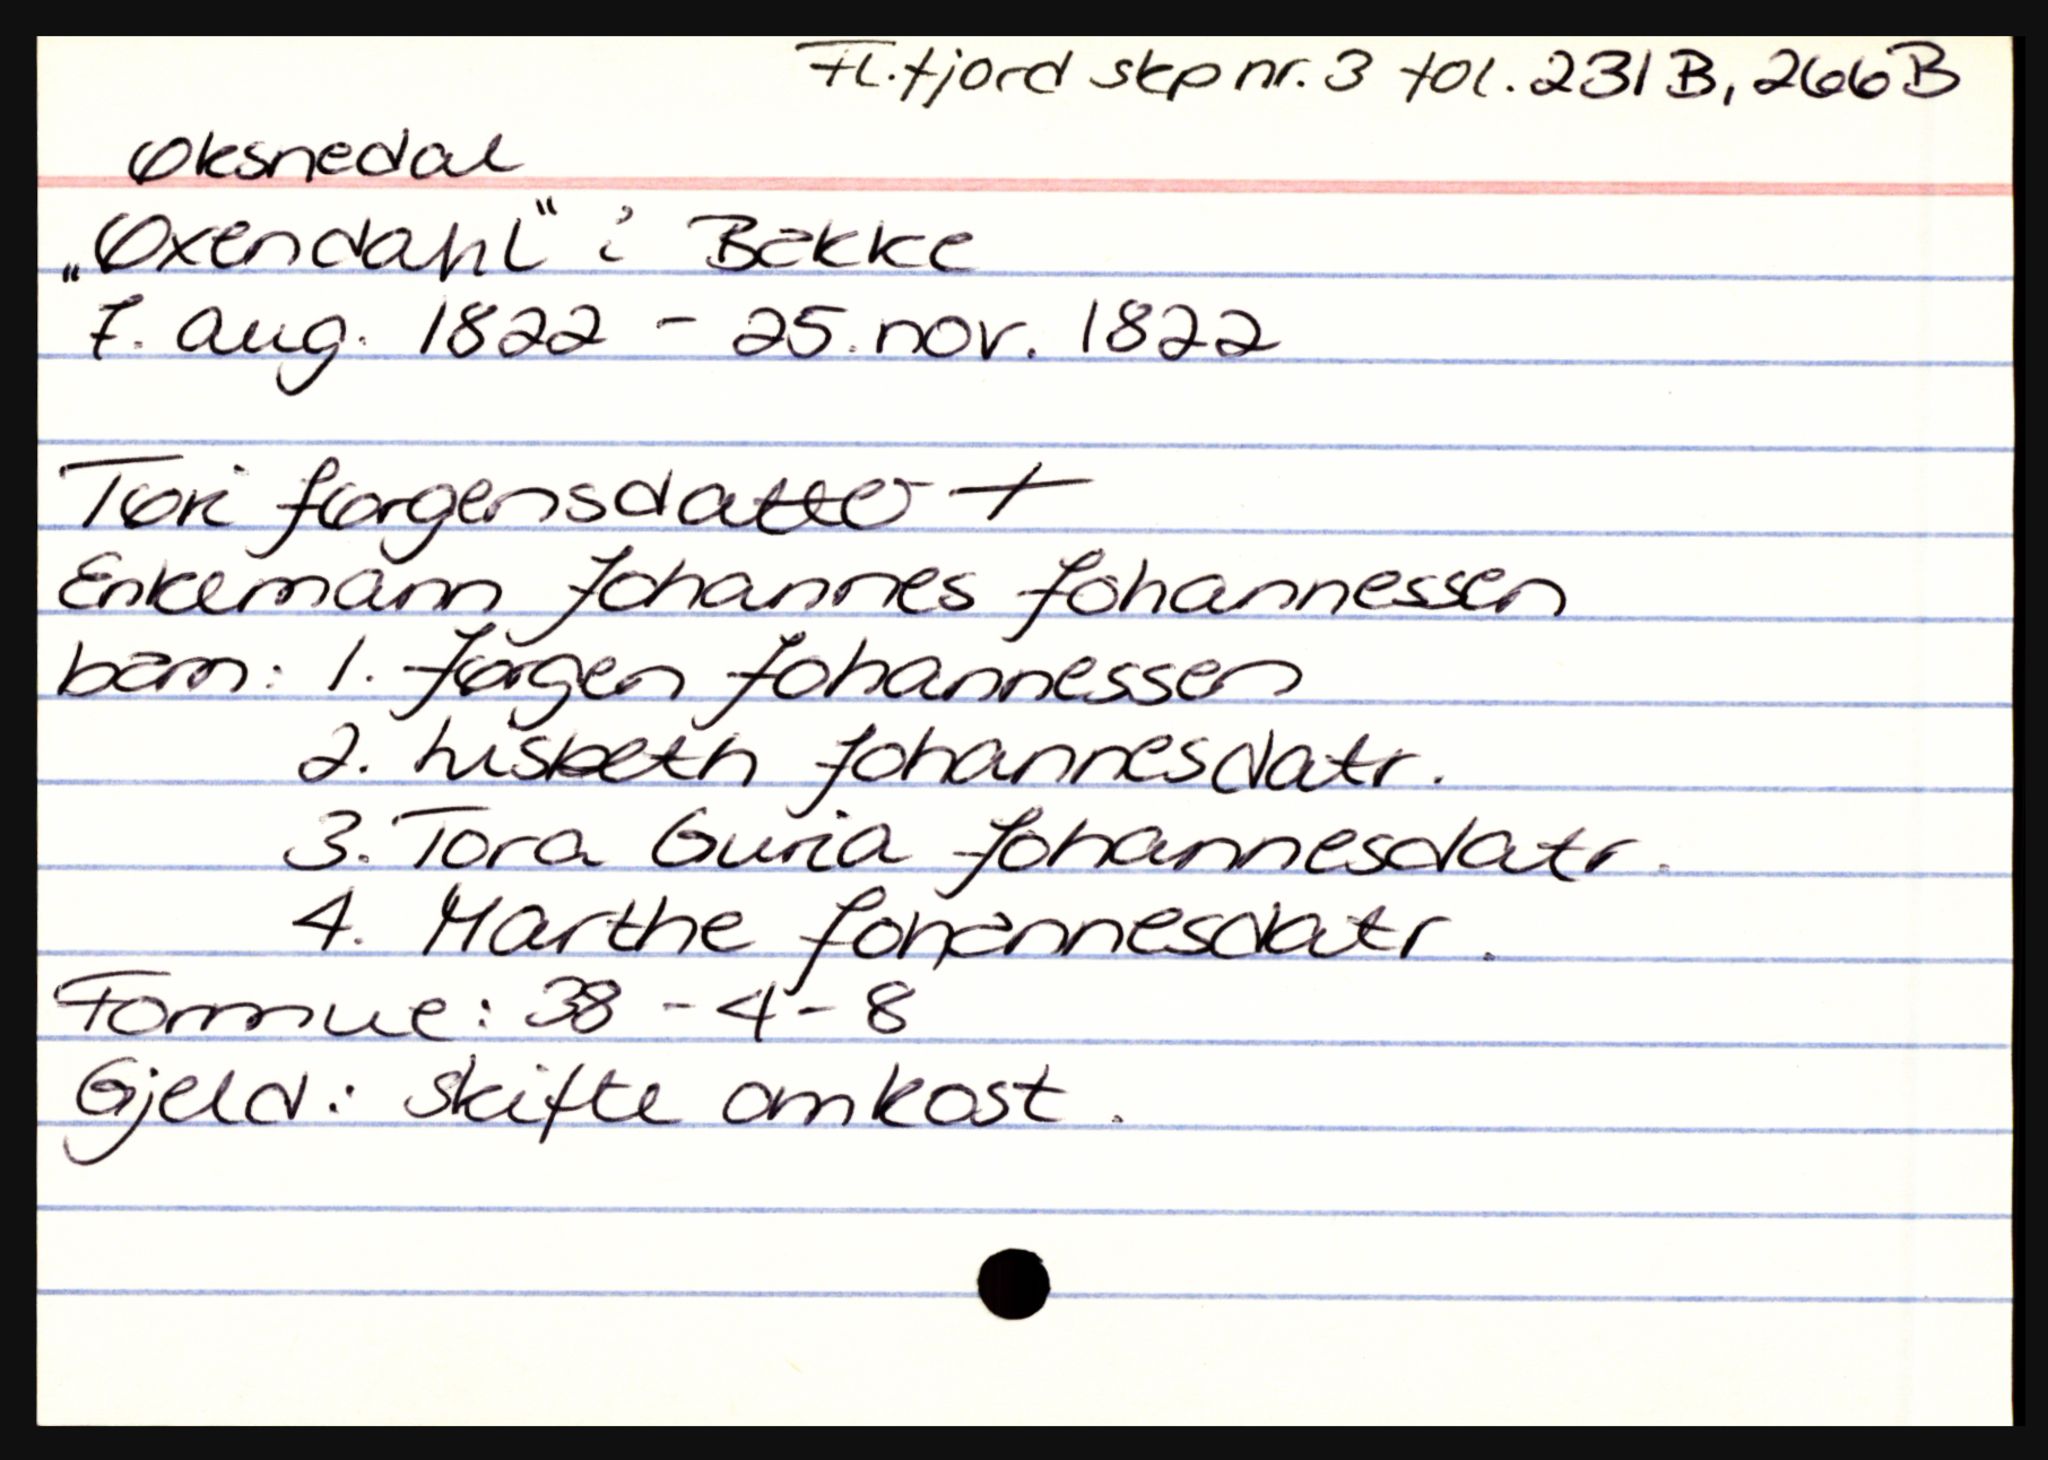 Fl.fjord skp nr. 3 fol. 231B, 266B
Øksnedal
„Øxendahl“ i Bakke
7. aug. 1822 - 25. nov. 1822
Tøri Jørgensdatter +
Enkemann Johannes Johannessen
barn: 1. Jørgen Johannessen
2. Lisbeth Johannesdatr.
3. Tora Guria Johannesdatr.
4. Marthe Johannesdatr.
Formue: 38 - 4 - 8
Gjeld: skifte omkost.